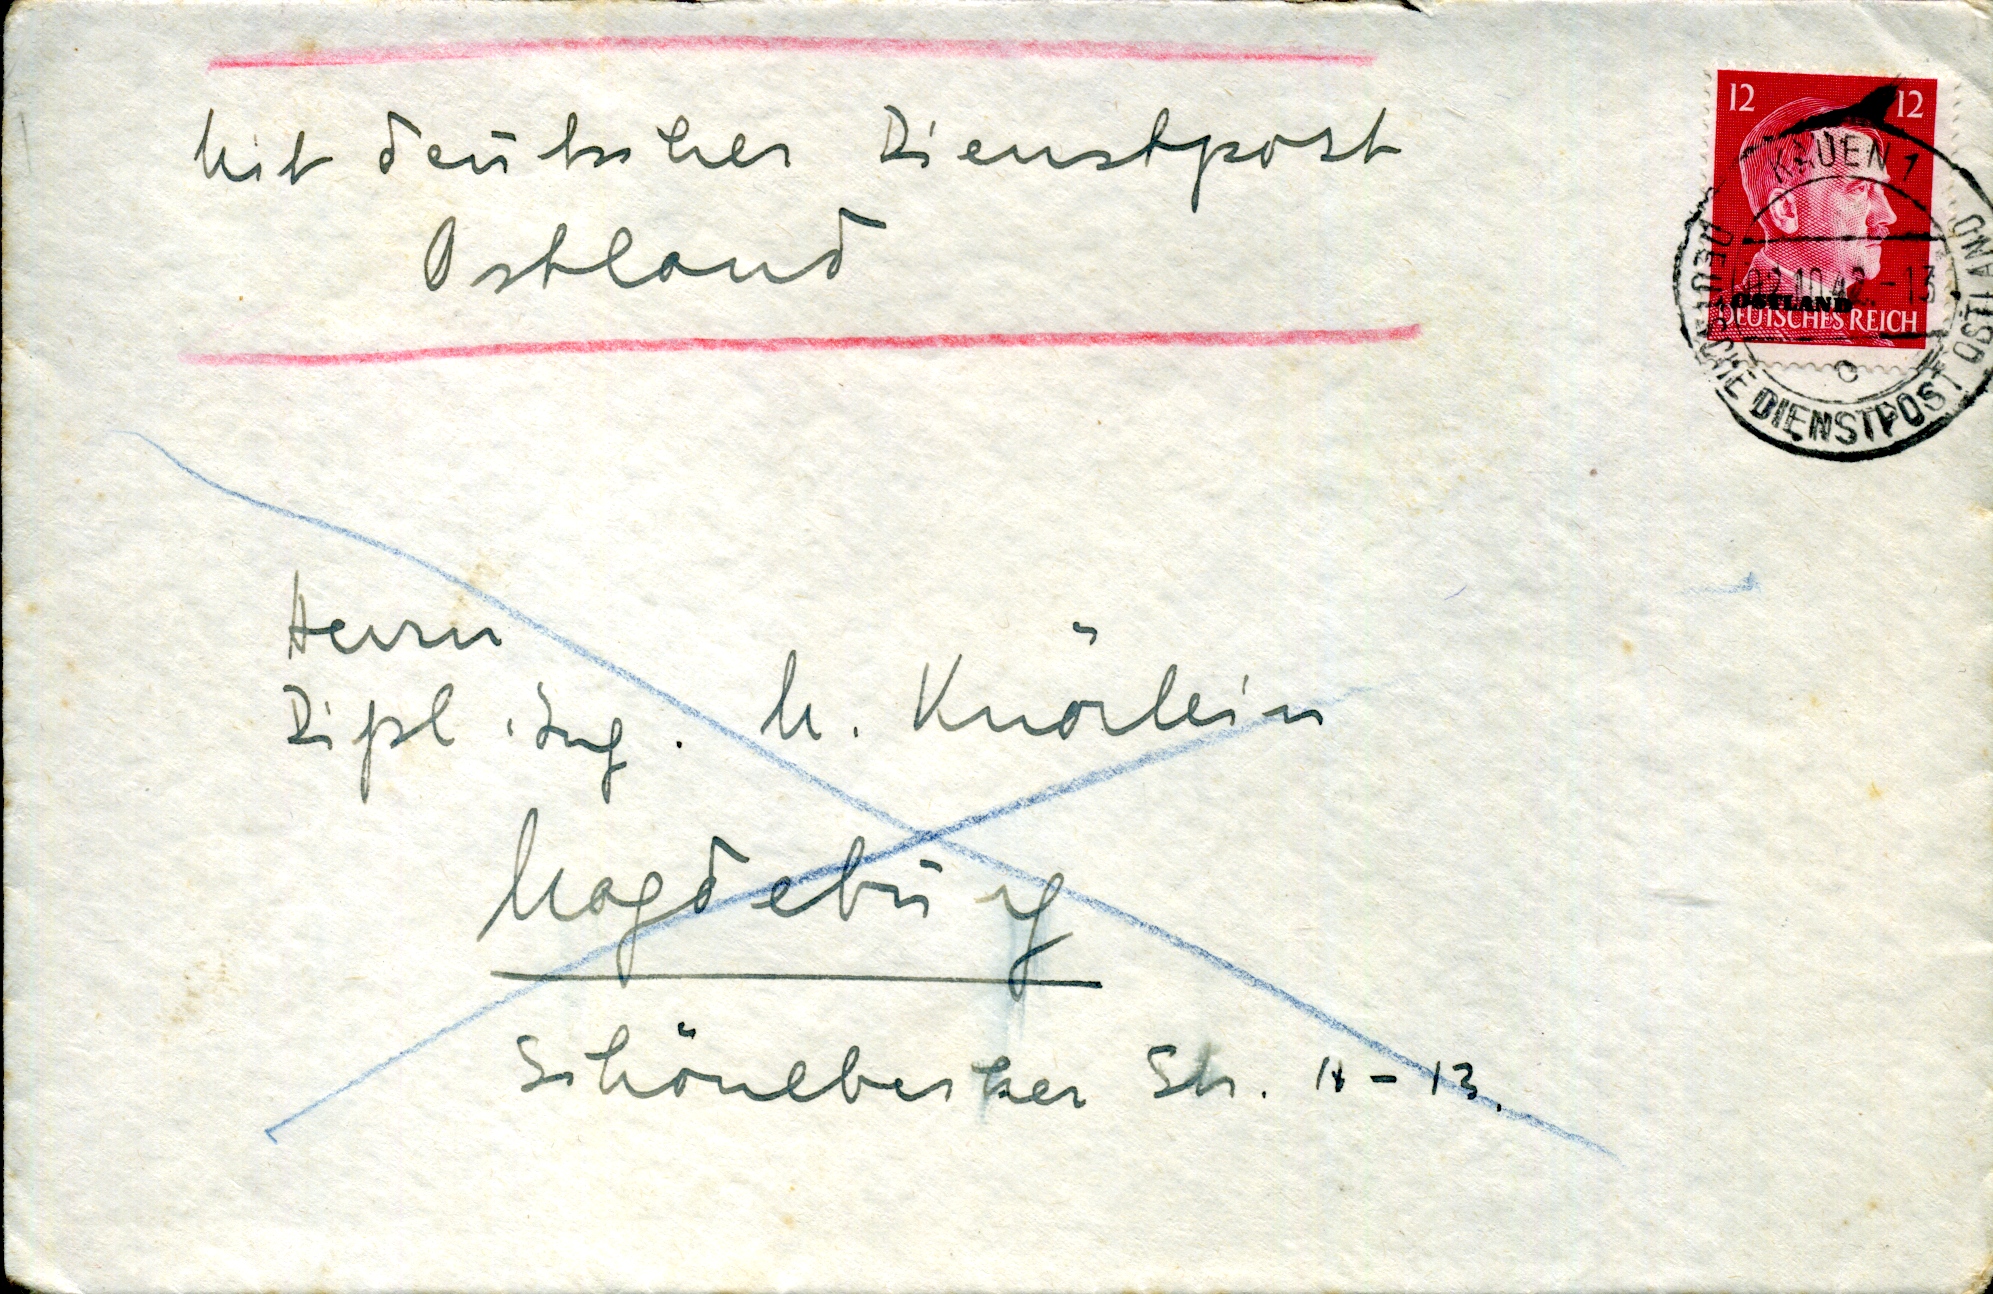 Mit deutscher Dienstpost
Ostland
12 12
OSTLAND
DEUTSCHES REICH
KAUEN 1
02.10.42.-13
DEUTSCHE DIENSTPOST OSTLAND
Herrn
Dipl. Ing. M. Knörlein
Magdeburg
Schönebecker Str. 11-13.